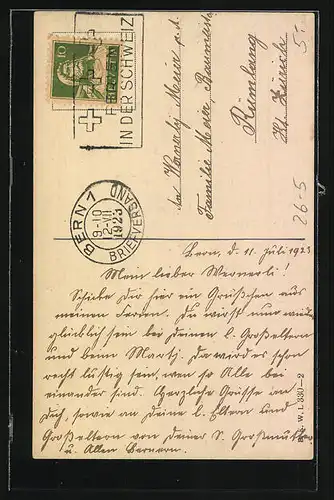 10
HELVETIA
FERIEN
IN DER SCHWEIZ
BERN 1
9-10
12. VII
1923
BRIEFVERSAND
An Wernerli Meier p. A.
Familie Meier, Baumeister
Rümlang
Kt. Zürich
26-5
5.-
Bern, d. 11. Juli 1923
Mein lieber Wernerli!
Schicke Dir hier ein Grüsschen aus
meinen Ferien. Du wirst nun wieder
glücklich sein bei Deinen l. Großeltern
und beim Martj. Da wird es schon
recht lustig sein, wen so Alle bei
einander sind. Herzliche Grüsse an
Dich, sowie an Deine l. Eltern und
Großeltern von Deiner l. Großmutter
u. Allen Bernern.
W. L. 330-2